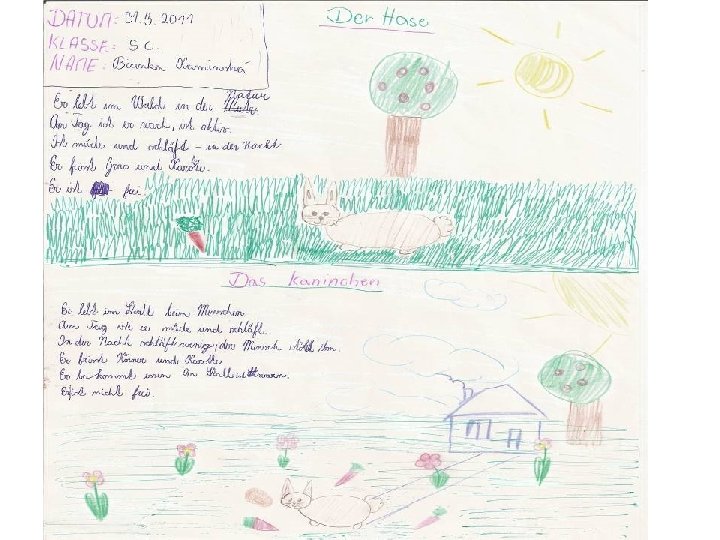 DATUM: 31.3.2011
KLASSE: 5C.
NAME:
Der Hase
Er lebt im Wald, in der Natur
Am Tag ist er wach, ist aktiv.
Ist müde und schläft - in der Nacht.
Er frisst Gras und Karotte.
Er ist frei.
Das Kaninchen
Er lebt im Stall beim Menschen
Am Tag ist es müde und schläft.
In der Nacht schläft wenig, der Mensch ihn.
Er frisst Körner und Karotte.
Er bekommt
Er ist nicht frei.